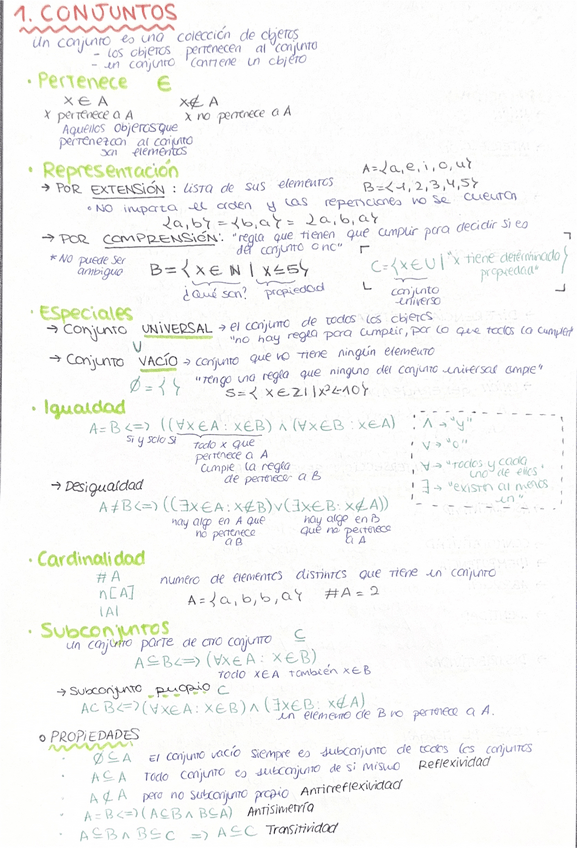 1. CONJUNTOS
Un conjunto es una colección de objetos
- los objetos pertenecen al conjunto
- un conjunto contiene un objeto
· Pertenece ∈
x ∈ A x ∉ A
x pertenece a A x no pertenece a A
Aquellos objetos que
pertenezcan al conjunto
son elementos
· Representación
→ POR EXTENSIÓN: lista de sus elementos
A={a,e,i,o,u}
B={-1,2,3,4,5}
• NO importa el orden y las repeticiones no se cuentan
{a,b} = {b,a} = {a,b,a}
→ POR COMPRENSIÓN: "regla que tienen que cumplir para decidir si es
del conjunto o no"
*NO puede ser
ambiguo
B = {x ∈ N | x ≤ 5}
¿Qué son? propiedad
C={x∈U | "x tiene determinado
propiedad"}
conjunto
universo
· Especiales
→ Conjunto UNIVERSAL → el conjunto de todos los objetos
U "no hay regla para cumplir, por lo que todos la cumplen"
→ Conjunto VACÍO → conjunto que no tiene ningún elemento
∅ = { } "Tengo una regla que ninguno del conjunto universal cumple"
S = { x∈Z | x²<-10}
· Igualdad
A = B <=> ((∀x∈A : x∈B) ∧ (∀x∈B : x∈A)
si y solo si
Todo x que
pertenece a A
cumple la regla
de pertenecer a B
∧ → "y"
∨ → "o"
∀ → "todos y cada
uno de ellos"
∃ → "existen al menos
un"
→ Desigualdad
A ≠ B <=> ((∃x∈A : x∉B) ∨ (∃x∈B : x∉A))
hay algo en A que
no pertenece
a B
hay algo en B
que no pertenece
a A
· Cardinalidad
#A
n[A]
|A|
numero de elementos distintos que tiene un conjunto
A = {a, b, b, a} #A = 2
· Subconjuntos
un conjunto parte de otro conjunto ⊆
A⊆B <=> (∀x∈A : x∈B)
Todo x∈A también x∈B
→ Subconjunto propio ⊂
A⊂B <=> (∀x∈A : x∈B) ∧ (∃x∈B : x∉A)
un elemento de B no pertenece a A.
o PROPIEDADES
· ∅ ⊆ A El conjunto vacío siempre es subconjunto de todos los conjuntos
· A ⊆ A Todo conjunto es subconjunto de si mismo Reflexividad
· A ⊄ A pero no subconjunto propio Antirreflexividad
· A=B <=> (A⊆B ∧ B⊆A) Antisimetría
· A⊆B ∧ B⊆C => A⊆C Transitividad